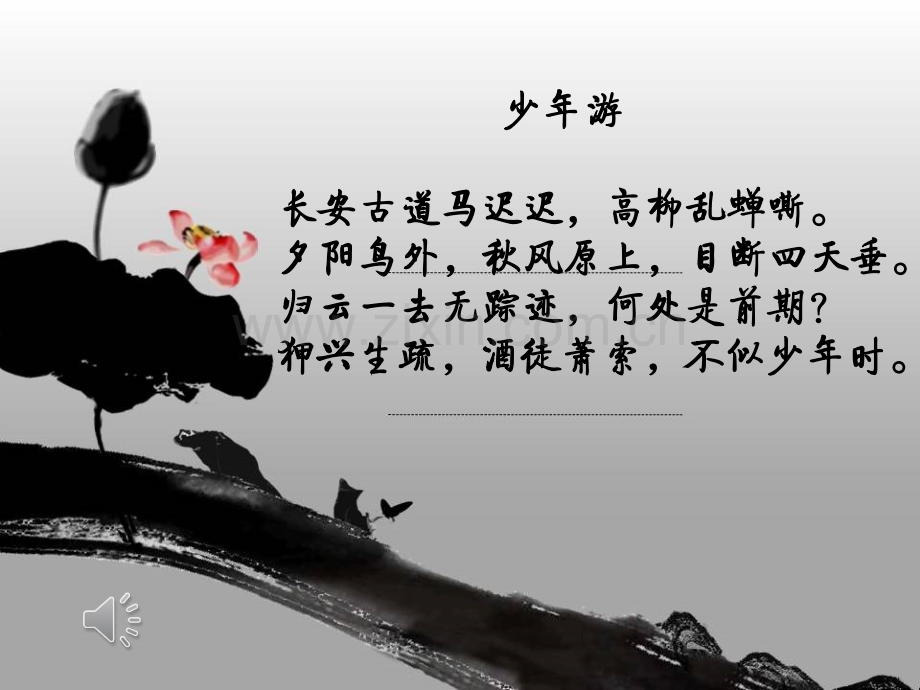 少年游
长安古道马迟迟，高柳乱蝉嘶。
夕阳鸟外，秋风原上，目断四天垂。
归云一去无踪迹，何处是前期？
狎兴生疏，酒徒萧索，不似少年时。
www.zixin.com.cn